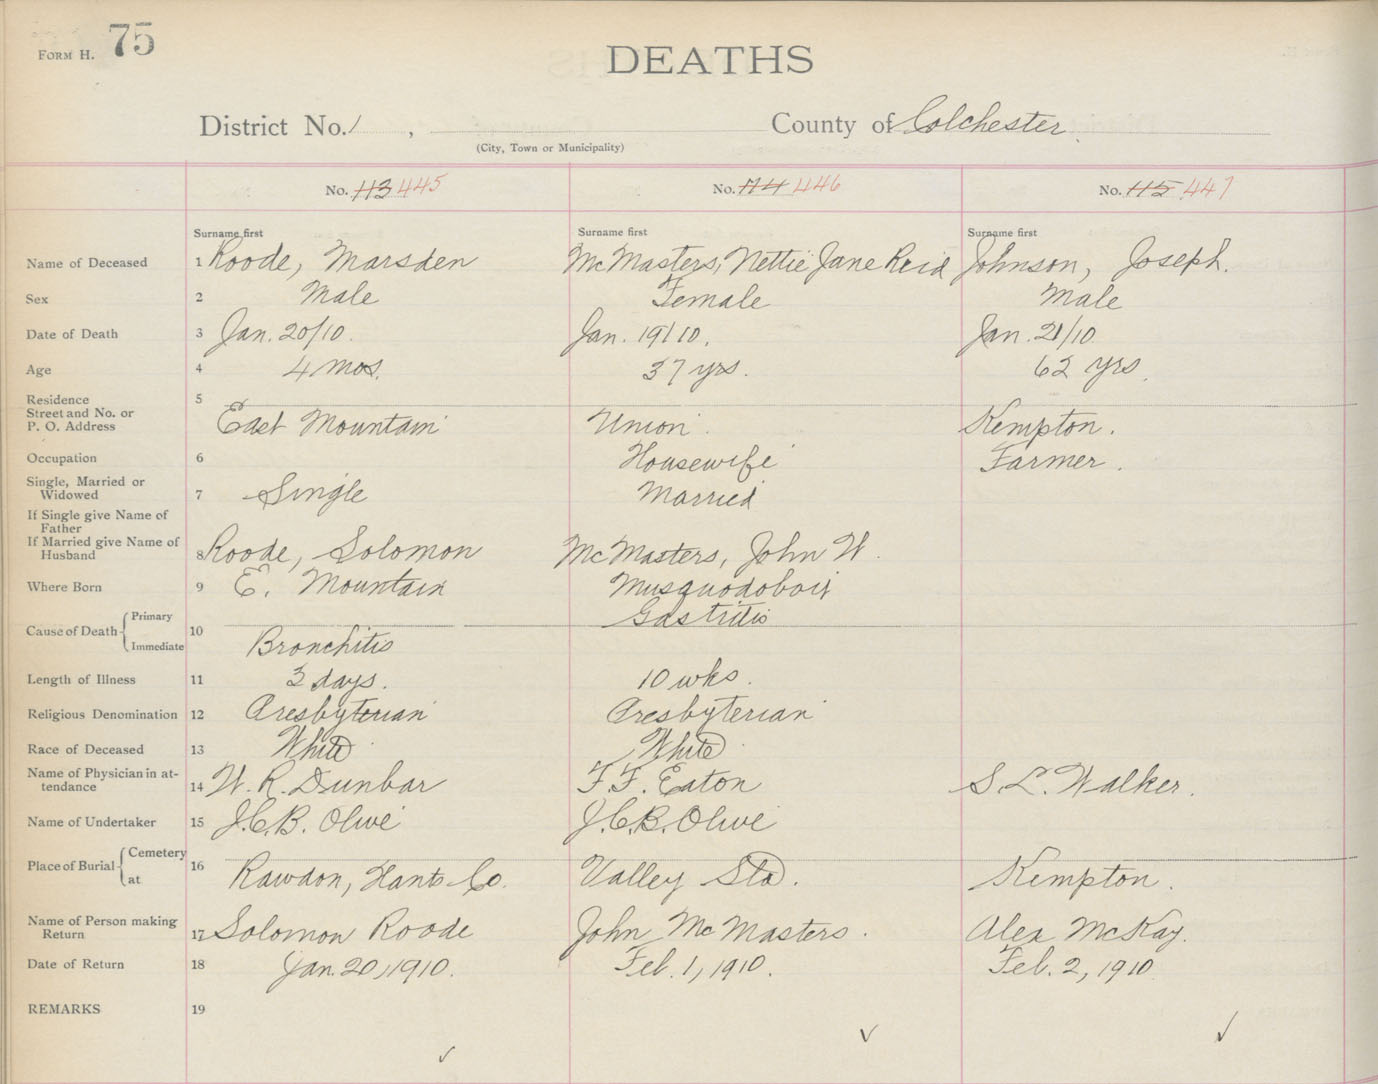 FORM H. 75
DEATHS
District No. 1 , County of Colchester.
(City, Town or Municipality)
No. 113 445 No. 114 446 No. 115 447
Surname first Surname first Surname first
Name of Deceased 1 Roode, Marsden McMasters, Nettie Jane Reid Johnson, Joseph.
Sex 2 Male Female Male
Date of Death 3 Jan. 20/10. Jan. 19/10. Jan. 21/10.
Age 4 4 mos. 37 yrs. 62 yrs.
Residence 5
Street and No. or
P. O. Address East Mountain Union Kempton.
Occupation 6 Housewife Farmer.
Single, Married or
Widowed 7 Single Married
If Single give Name of
Father
If Married give Name of
Husband 8 Roode, Solomon McMasters, John W.
Where Born 9 E. Mountain Musquodoboit
Cause of Death Primary Gastritis
10
Immediate Bronchitis
Length of Illness 11 3 days. 10 wks.
Religious Denomination 12 Presbyterian Presbyterian
Race of Deceased 13 White White
Name of Physician in at-
tendance 14 W. R. Dunbar F. F. Eaton S. L. Walker.
Name of Undertaker 15 J. C. B. Olive J. C. B. Olive
Place of Burial Cemetery
16
at Rawdon, Hants Co. Valley Sta. Kempton.
Name of Person making
Return 17 Solomon Roode John McMasters. Alex McKay.
Date of Return 18 Jan. 20, 1910. Feb. 1, 1910. Feb. 2, 1910
REMARKS 19